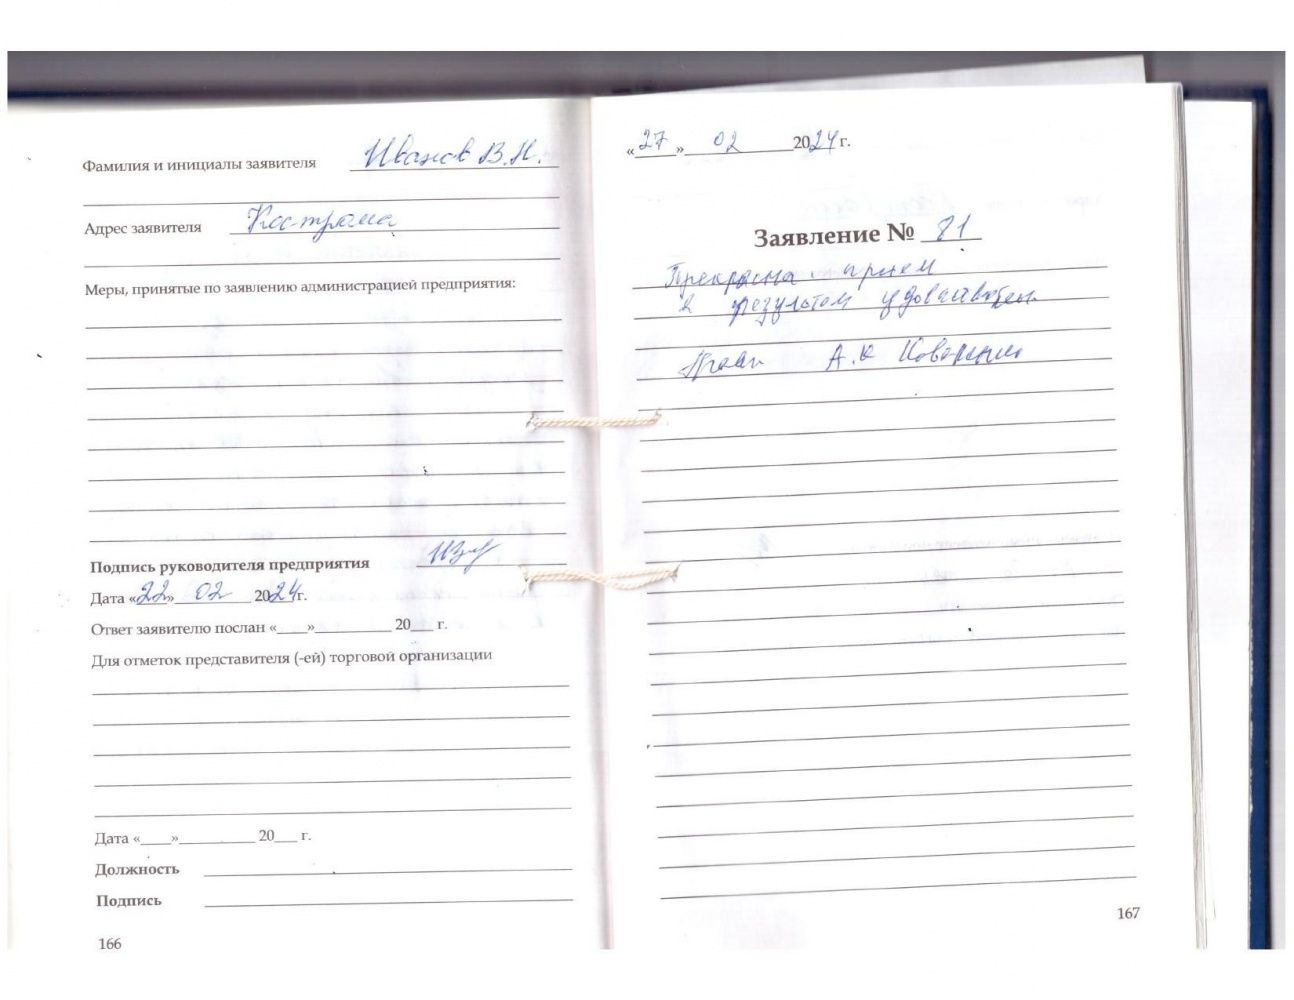 Фамилия и инициалы заявителя Иванов В.Н.
Адрес заявителя Кострома
Меры, принятые по заявлению администрацией предприятия:
Подпись руководителя предприятия
Дата «22» 02 2024 г.
Ответ заявителю послан «____»__________ 20___ г.
Для отметок представителя (-ей) торговой организации
Дата «____»__________ 20___ г.
Должность
Подпись
166
«27» 02 2024 г.
Заявление № 81
прием
результатом
А.
167